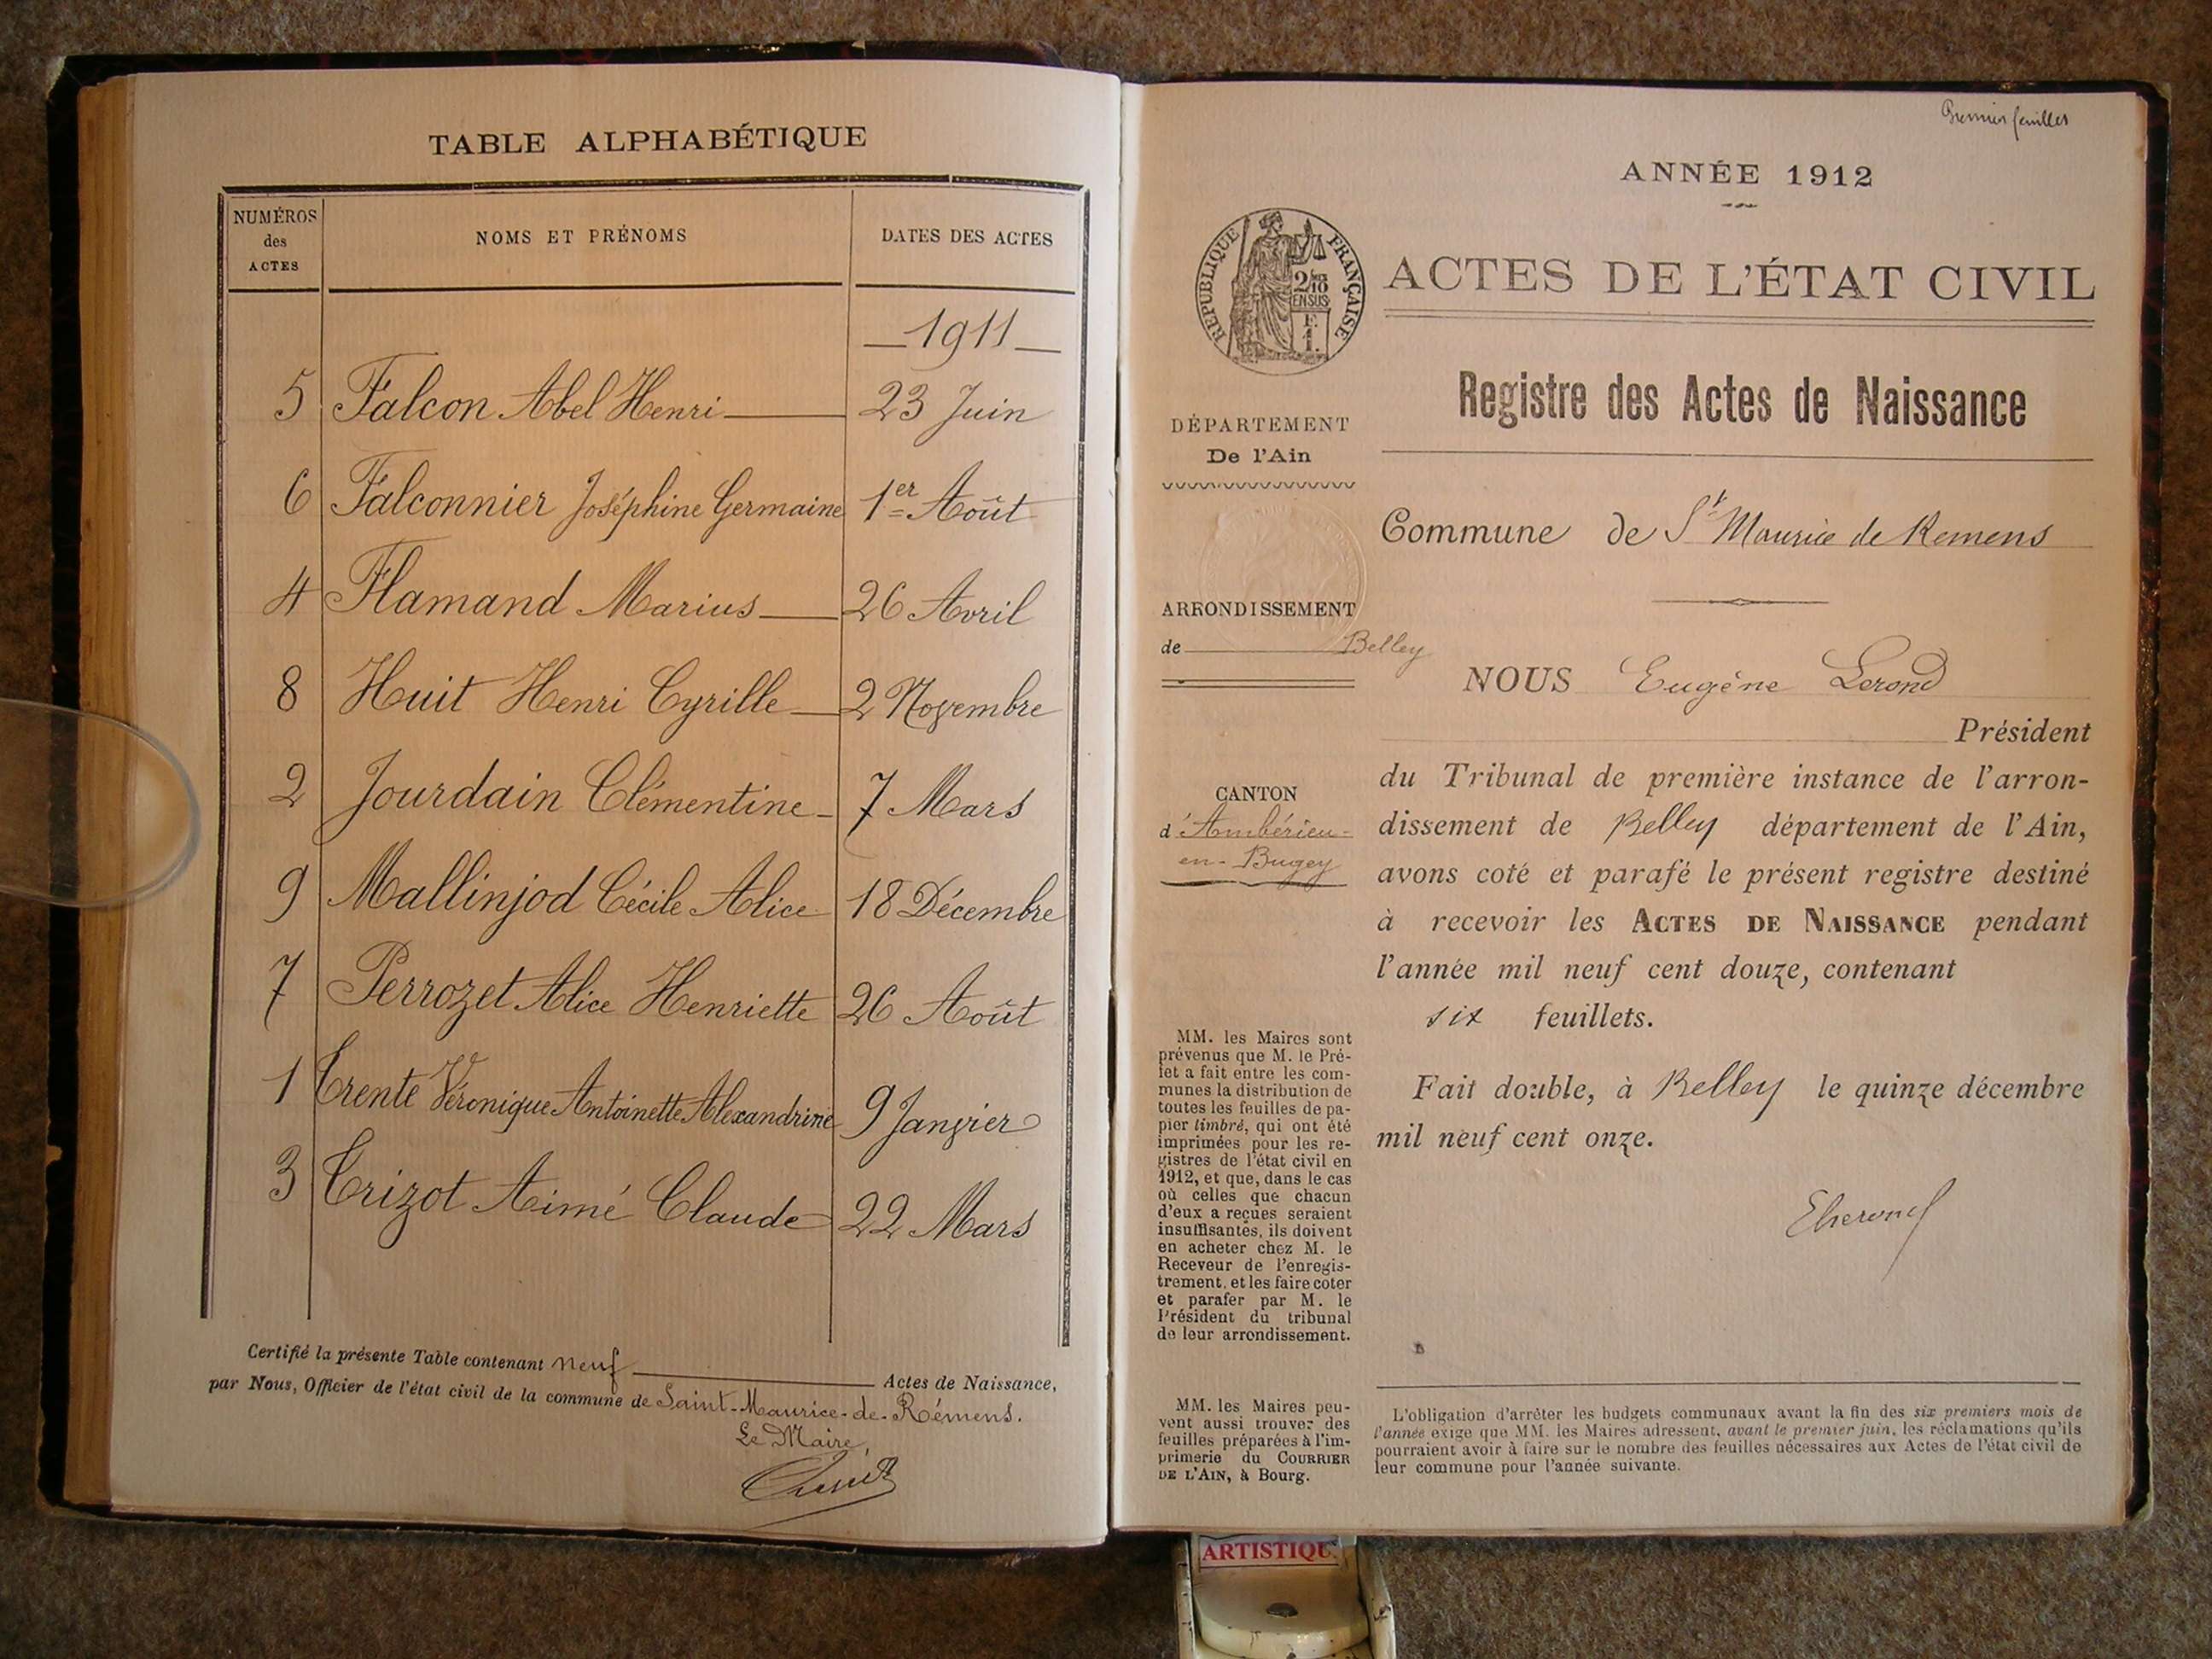 TABLE ALPHABÉTIQUE
NUMÉROS
des
ACTES
NOMS ET PRÉNOMS
DATES DES ACTES
1911
5 Falcon Abel Henri 23 Juin
6 Falconnier Joséphine Germaine 1er Août
4 Flamand Marius 26 Avril
8 Huit Henri Cyrille 2 Novembre
2 Jourdain Clémentine 7 Mars
9 Mallinjod Cécile Alice 18 Décembre
7 Perrozet Alice Henriette 26 Août
1 Trente Véronique Antoinette Alexandrine 9 Janvier
3 Trizot Aimé Claude 22 Mars
Certifié la présente Table contenant neuf Actes de Naissance,
par Nous, Officier de l'état civil de la commune de Saint-Maurice-de-Rémens.
Le Maire,
Premier feuillet
ANNÉE 1912
RÉPUBLIQUE FRANÇAISE
2/10
EN SUS
F.
1.
ACTES DE L'ÉTAT CIVIL
Registre des Actes de Naissance
DÉPARTEMENT
De l'Ain
Commune de St Maurice de Remens
ARRONDISSEMENT
de Belley
CANTON
d'Ambérieu-
en-Bugey
NOUS Eugène Lerond
Président
du Tribunal de première instance de l'arron-
dissement de Belley département de l'Ain,
avons coté et parafé le présent registre destiné
à recevoir les ACTES DE NAISSANCE pendant
l'année mil neuf cent douze, contenant
six feuillets.
Fait double, à Belley le quinze décembre
mil neuf cent onze.
MM. les Maires sont
prévenus que M. le Pré-
fet a fait entre les com-
munes la distribution de
toutes les feuilles de pa-
pier timbré, qui ont été
imprimées pour les re-
gistres de l'état civil en
1912, et que, dans le cas
où celles que chacun
d'eux a reçues seraient
insuffisantes, ils doivent
en acheter chez M. le
Receveur de l'enregis-
trement, et les faire coter
et parafer par M. le
Président du tribunal
de leur arrondissement.
MM. les Maires peu-
vent aussi trouver des
feuilles préparées à l'im-
primerie du COURRIER
DE L'AIN, à Bourg.
L'obligation d'arrêter les budgets communaux avant la fin des six premiers mois de
l'année exige que MM. les Maires adressent, avant le premier juin, les réclamations qu'ils
pourraient avoir à faire sur le nombre des feuilles nécessaires aux Actes de l'état civil de
leur commune pour l'année suivante.
ARTISTIQU